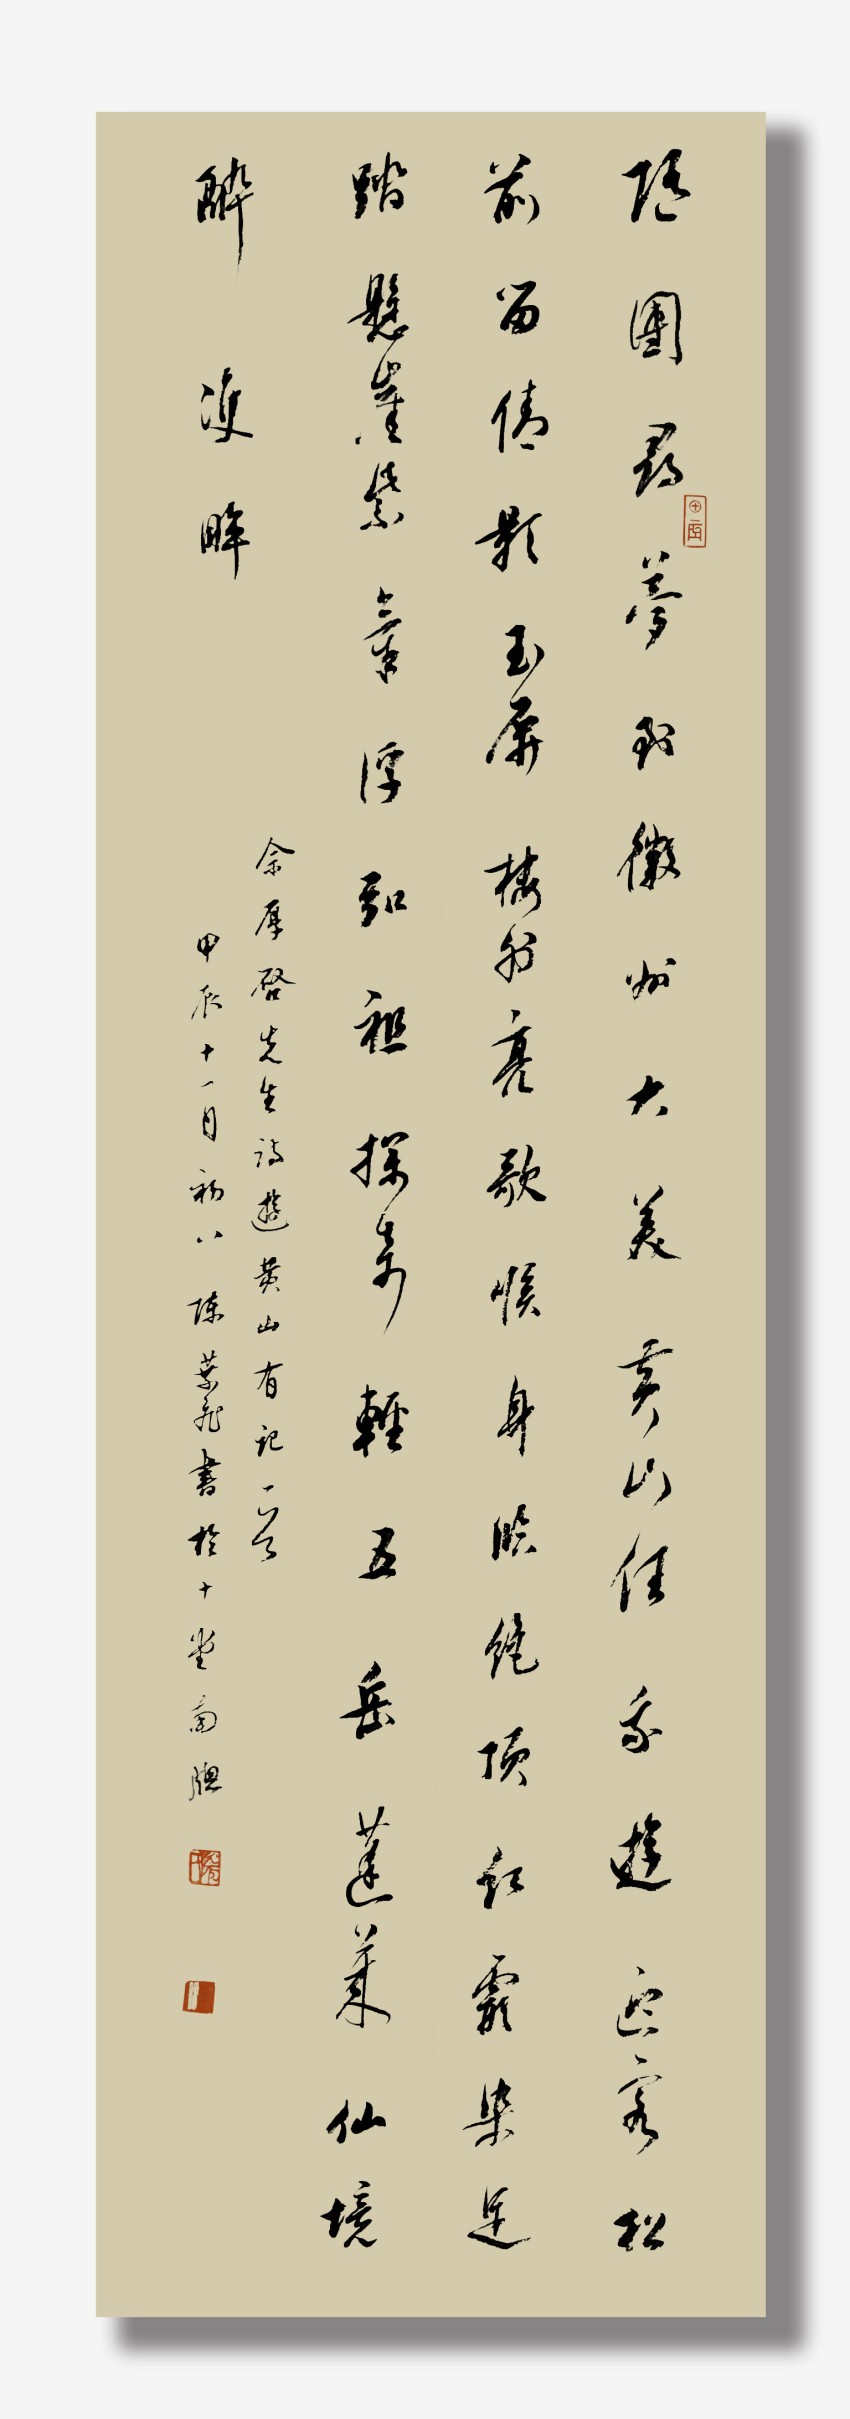 隨團尋夢到徽州大美黃山任我遊迎客松
前留倩影玉屏樓外亮歌喉身臨絕頂紅霞染足
踏懸崖紫氣浮弘祖探奇輕五岳蓬萊仙境
醉雙眸
余厚啓先生詩遊黃山有記一首
甲辰十一月初八陳葉飛書於十堂南牕